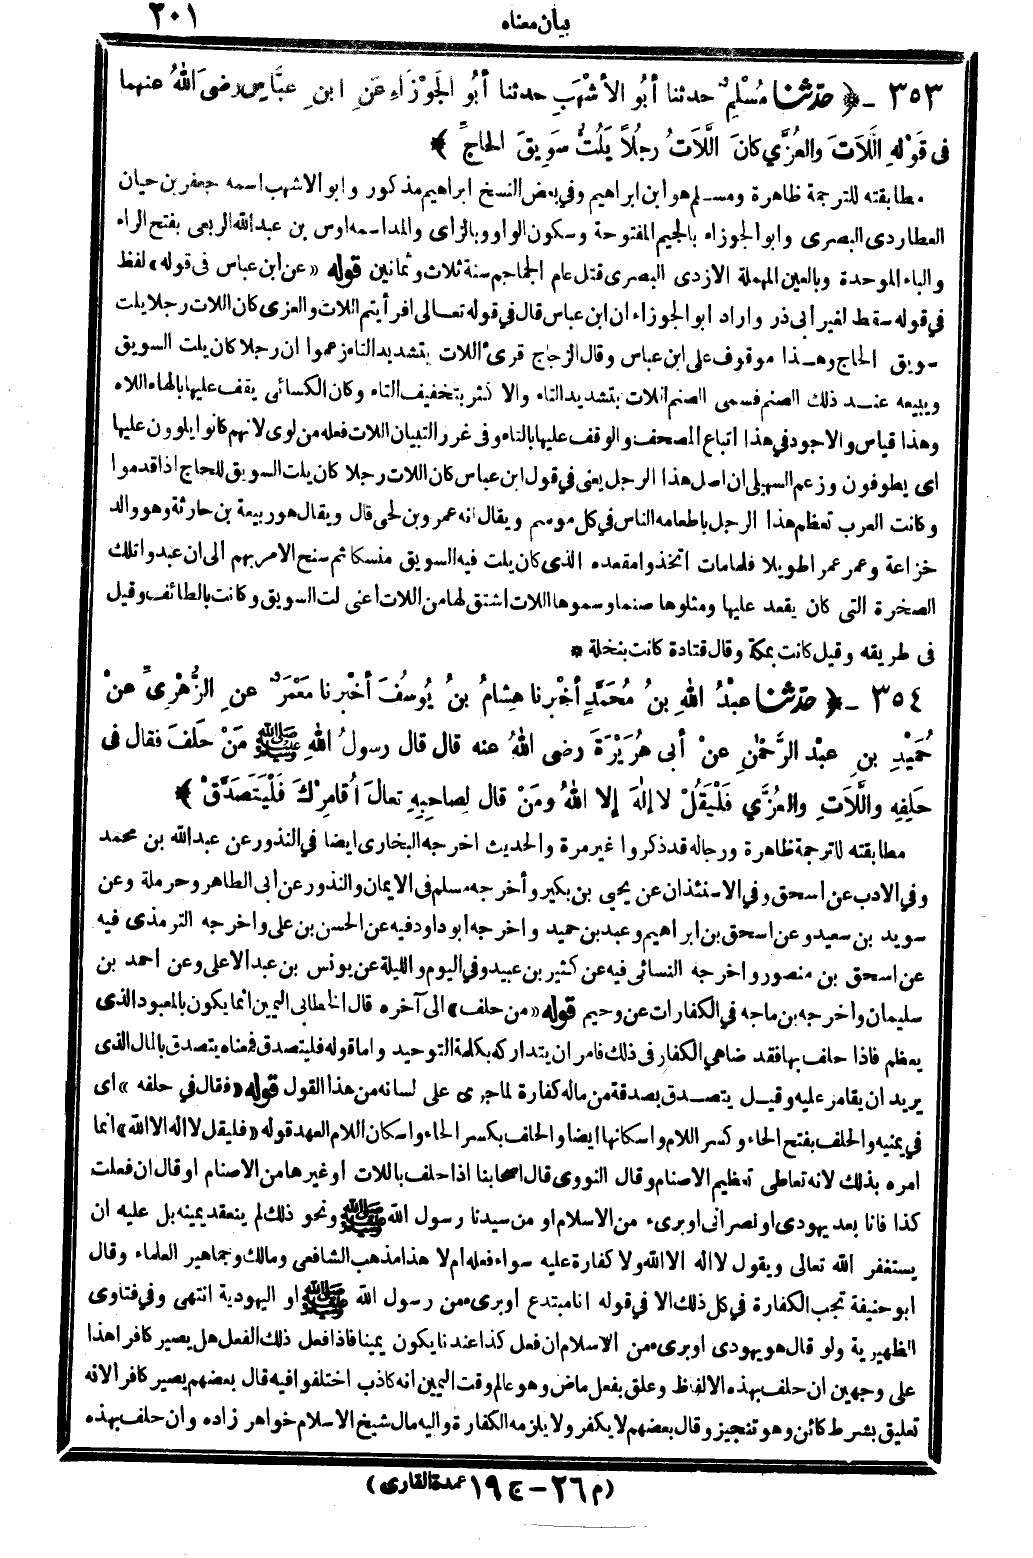 بيان معناه
٢٠١
٣٥٣ - ﴿ حدثنا مُسْلِمٌ حدثنا أبُو الأشْهَبِ حدثنا أبُو الجَوْزَاءِ عَنِ ابنِ عبَّاسٍ رضى اللهُ عنهما
فى قَوْلِهِ اللَّاتَ والعُزَّي كانَ اللَّاتُ رجُلاً يَلُتُّ سَوِيقَ الحَاجِّ ﴾
مطابقته للترجمة ظاهرة ومسلم هو ابن ابراهيم وفي بعض النسخ ابراهيم مذكور وابو الاشهب اسمه جعفر بن حيان
العطاردى البصرى وابو الجوزاء بالجيم المفتوحة وسكون الواو وبالزاى والمد اسمه اوس بن عبد الله الربعى بفتح الراء
والباء الموحدة وبالعين المهملة الازدى البصرى قتل عام الجماجم سنة ثلاث وثمانين قوله «عن ابن عباس فى قوله» لفظ
في قوله سقط لغير أبى ذر واراد ابو الجوزاء ان ابن عباس قال في قوله تعالى افرأيتم اللات والعزى كان اللات رجلا يلت
سويق الحاج وهذا موقوف على ابن عباس وقال الزجاج قرىء اللات بتشديد التاء زعموا ان رجلا كان يلت السويق
ويبيعه عند ذلك الصنم فسمى الصنم اللات بتشديد التاء والاكثر بتخفيف التاء وكان الكسائى يقف عليها بالهاء اللاه
وهذا قياس والاجود في هذا اتباع المصحف والوقف عليها بالتاء وفى غرر التبيان اللات فعله من لوى لانهم كانوا يلوون عليها
اى يطوفون وزعم السهيلى ان اصل هذا الرجل يعنى في قول ابن عباس كان اللات رجلا كان يلت السويق للحاج اذا قدموا
وكانت العرب تعظم هذا الرجل باطعامه الناس في كل موسم ويقال انه عمرو بن لحى قال ويقال هو ربيعة بن حارثة وهو والد
خزاعة وعمر عمرا طويلا فلما مات اتخذوا مقعده الذى كان يلت فيه السويق منسكا ثم سنح الامر بهم الى ان عبدوا تلك
الصخرة التى كان يقعد عليها ومثلوها صنما وسموها اللات اشتق لها من اللات أعنى لت السويق وكانت بالطائف وقيل
فى طريقه وقيل كانت بمكة وقال قتادة كانت بنخلة *
٣٥٤ - ﴿ حدثنا عبْدُ اللهِ بنُ مُحَمَّدٍ أخْبرنا هِشامُ بنُ يُوسُفَ أخْبرنا مَعْمَرٌ عنِ الزُّهْرِىِّ عنْ
حُمَيْدِ بنِ عبْدِ الرَّحْمٰنِ عنْ أبى هُرَيْرَةَ رضى اللهُ عنه قال قال رسولُ اللهِ ﷺ مَنْ حلَفَ فقال فى
حلِفِه واللَّاتِ والعُزَّي فَلْيَقُلْ لا إلٰهَ إلا اللهُ ومَنْ قال لِصاحِبِهِ تعالَ أُقامِرْكَ فَلْيَتَصَدَّقْ ﴾
مطابقته للترجمة ظاهرة ورجاله قد ذكروا غير مرة والحديث اخرجه البخارى ايضا في النذور عن عبد الله بن محمد
وفي الادب عن اسحق وفي الاستئذان عن يحيى بن بكير وأخرجه مسلم فى الايمان والنذور عن أبى الطاهر وحرملة وعن
سويد بن سعيد وعن اسحق بن ابراهيم وعبد بن حميد واخرجه ابو داود فيه عن الحسن بن على واخرجه الترمذى فيه
عن اسحق بن منصور واخرجه النسائى فيه عن كثير بن عبيد وفي اليوم والليلة عن يونس بن عبد الاعلى وعن احمد بن
سليمان واخرجه بن ماجه في الكفارات عن دحيم قوله «من حلف» الى آخره قال الخطابى اليمين انما يكون بالمعبود الذى
يعظم فاذا حلف بها فقد ضاهى الكفار فى ذلك فامر ان يتداركه بكلمة التوحيد واما قوله فليتصدق فمعناه يتصدق بالمال الذى
يريد ان يقامر عليه وقيل يتصدق بصدقة من ماله كفارة لما جرى على لسانه من هذا القول قوله «فقال في حلفه» اى
في يمنيه والحلف بفتح الحاء وكسر اللام واسكانها ايضا والحلف بكسر الحاء واسكان اللام العهد قوله «فليقل لا اله الا الله» انما
امره بذلك لانه تعاطى تعظيم الاصنام وقال النووى قال اصحابنا اذا حلف باللات او غيرها من الاصنام او قال ان فعلت
كذا فانا بعد يهودى او نصرانى او برىء من الاسلام او من سيدنا رسول الله ﷺ ونحو ذلك لم ينعقد يمينه بل عليه ان
يستغفر الله تعالى ويقول لا اله الا الله ولا كفارة عليه سواء فعله ام لا هذا مذهب الشافعى ومالك وجماهير العلماء وقال
ابو حنيفة تجب الكفارة في كل ذلك الا في قوله انا مبتدع او برىء من رسول الله ﷺ او اليهودية انتهى وفي فتاوى
الظهيرية ولو قال هو يهودى او برىء من الاسلام ان فعل كذا عندنا يكون يمينا فاذا فعل ذلك الفعل هل يصير كافرا هذا
على وجهين ان حلف بهذه الالفاظ وعلق بفعل ماض وهو عالم وقت اليمين انه كاذب اختلفوا فيه قال بعضهم يصير كافرا لانه
تعليق بشرط كائن وهو تنجيز وقال بعضهم لا يكفر ولا يلزمه الكفارة واليه مال شيخ الاسلام خواهر زاده وان حلف بهذه
(م ٢٦ - ج ١٩ عمدة القارى)